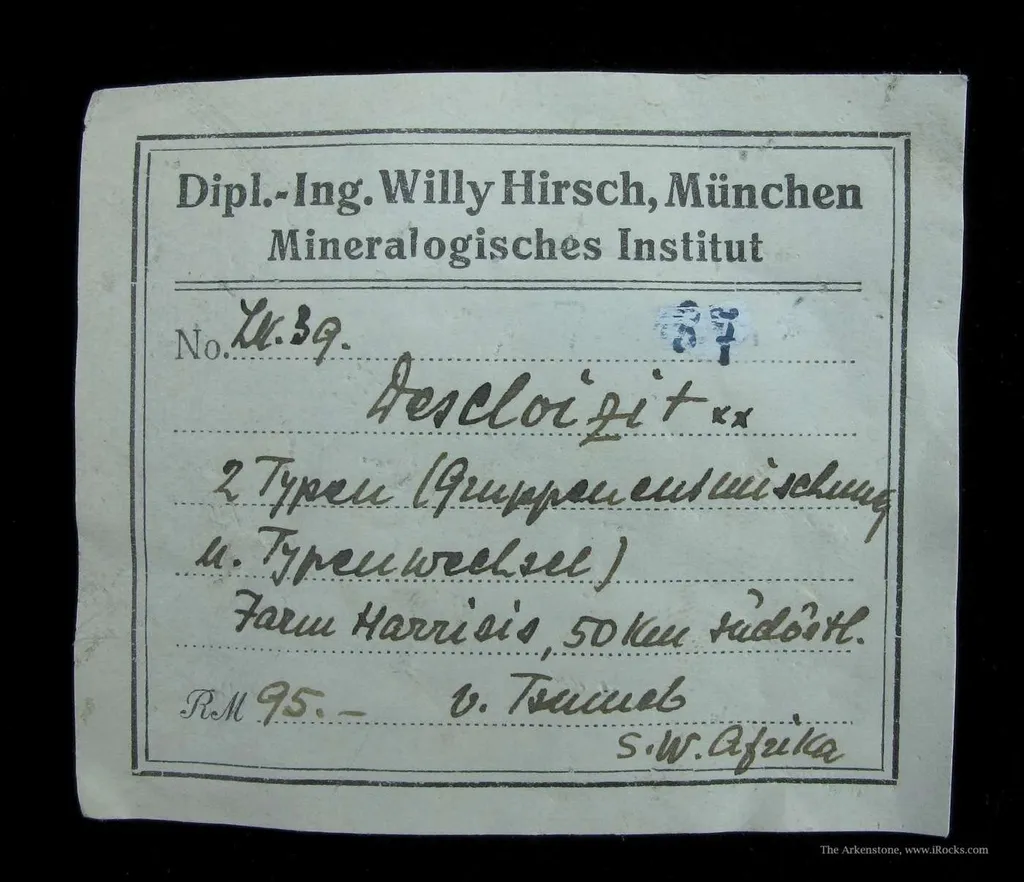 Dipl.-Ing. Willy Hirsch, München
Mineralogisches Institut
No. 39.
37
Descloizit xx
2 Typen (Gruppenentmischung
u. Typenwechsel)
Farm Harrisis, 50 Km südöstl.
RM 95.— v. Tsumeb
S.W. Afrika
The Arkenstone, www.iRocks.com